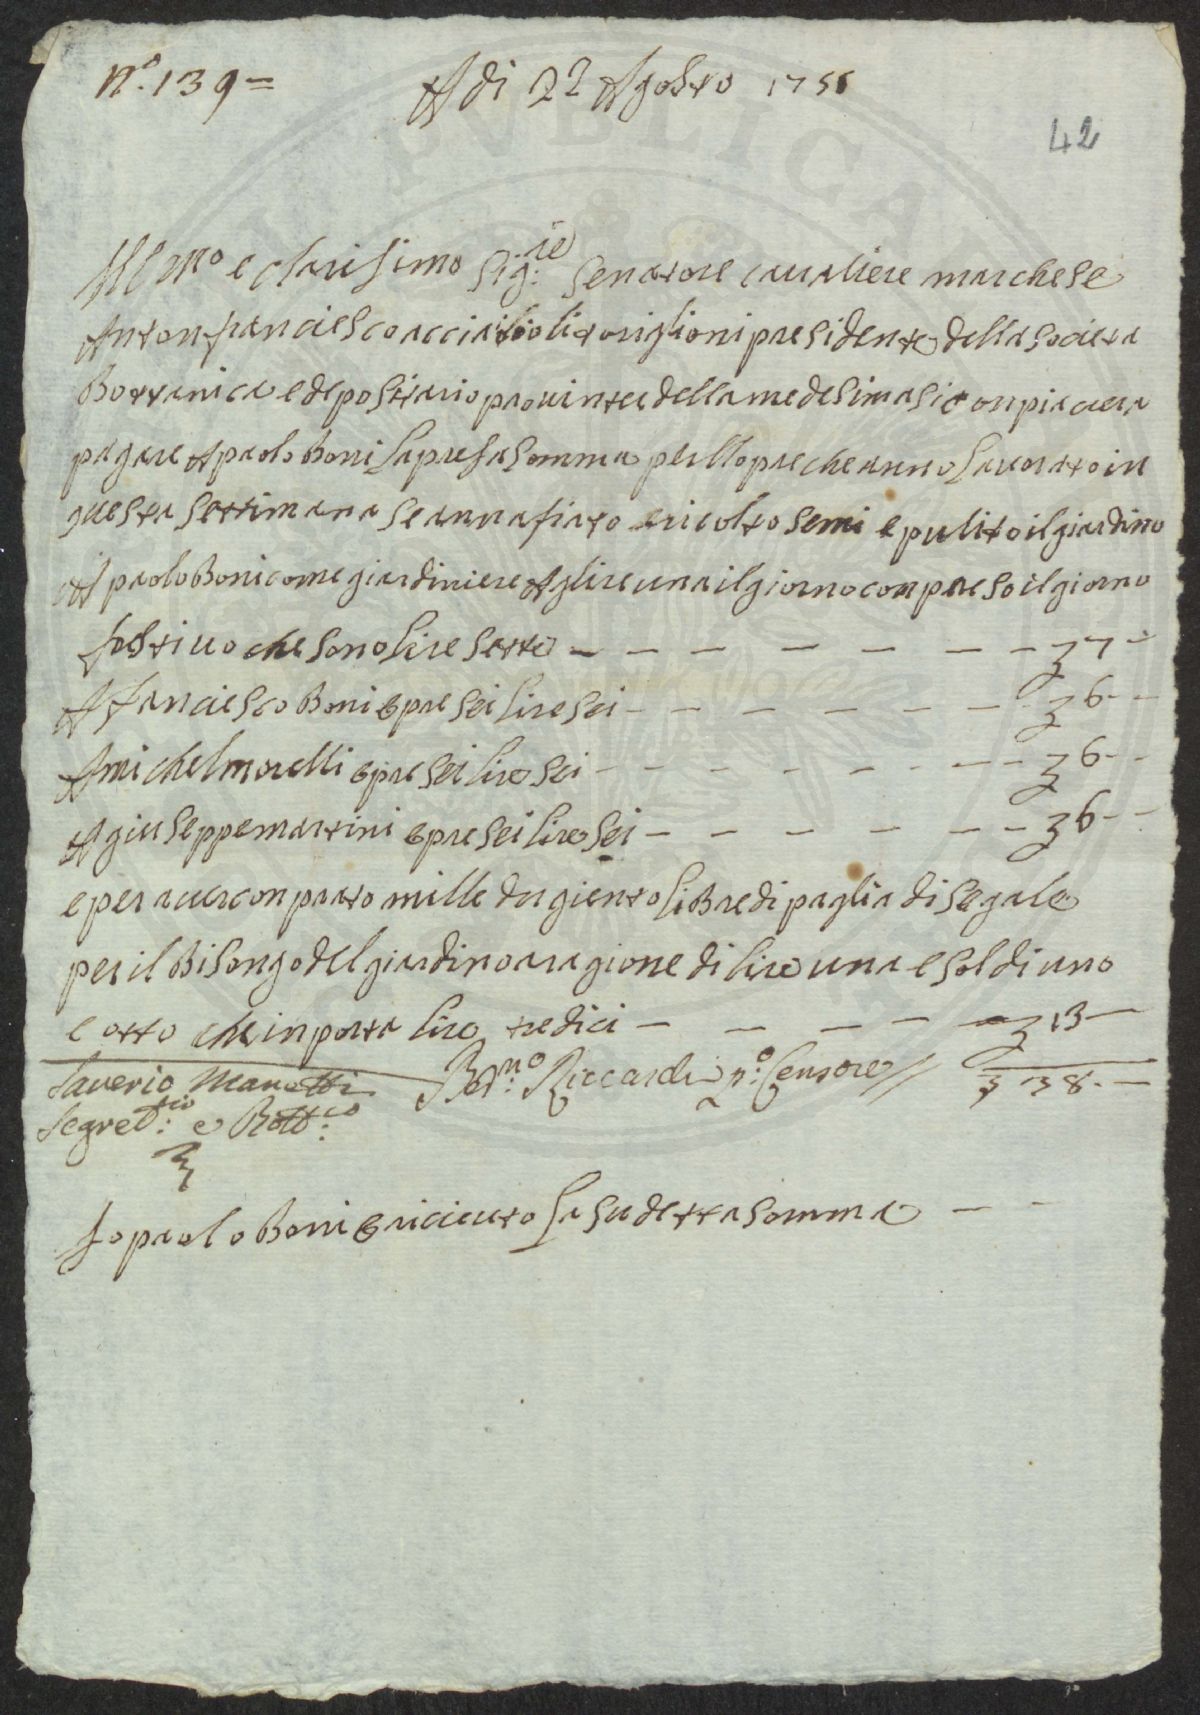 N.º 139 =
A di 22 Agosto 1751
42
Ill.mo e clarisimo Sig:re Senatore cavaliere marchese
Antonfranciesco acciaiolitoriglioni presidente della societa
Bottanica e depositario provinter della medesima si conpiacera
pagare A paolo Boni la presa somma per llopre che anno lavorato in
questa settimana se annafiato e ricolto semi e pulito il giardino
A paolo Boni come giardiniere A lire una il giorno conpreso il giorno
festivo che sono lire sette — — — — — — — 7 —
A Franciesco Boni opre sei lire sei — — — — — — 6 — —
A michel morelli opre sei lire sei — — — — — — 6 — —
A giuseppe martini opre sei lire sei — — — — — — 6 — —
e per aver conprato mille dugiento libre di paglia di segale
per il Bisongo del giardino a ragione di lire una e soldi uno
e otto che inporta lire tredici — — — — — 13 —
Saverio Manetti
Segret:rio e Bott:co
Ber:no Riccardi p:º Censore //
38. —
Io paolo Boni o riceuto la sudetta somma — —